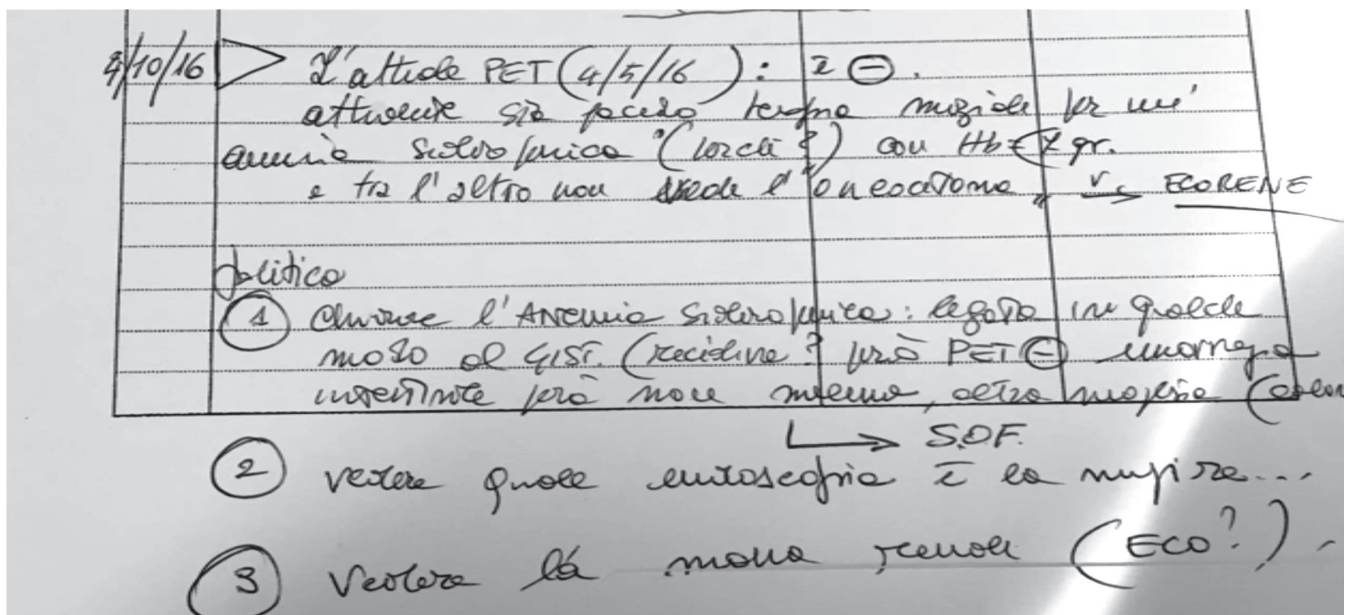 4/10/16 L'attuale PET (4/5/16): è ⊖.
attualmente sta facendo terapia marziale per un'
anemia sideropenica (loreti?) con Hb 7 gr.
e tra l'altro non vede l'oncocitoma → ECORENE
politica
① Chiarire l'Anemia sideropenica: legata in qualche
modo al GIST. (recidiva? però PET ⊖ emorragia
intestinale però non melena, altra neoplasia (colon
→ S.O.F.
② vedere quale endoscopia è la migliore...
③ Vedere la massa renale (ECO?).